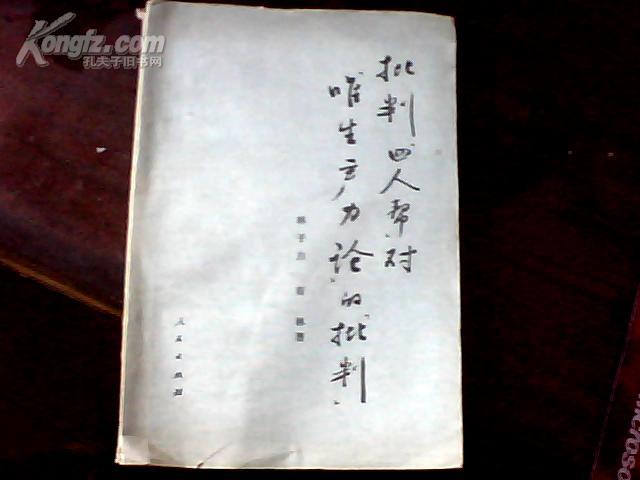 Kongfz.com
孔夫子旧书网
批判“四人帮”对
“唯生产力论”的“批判”
林子力 有林著
人民出版社
microso